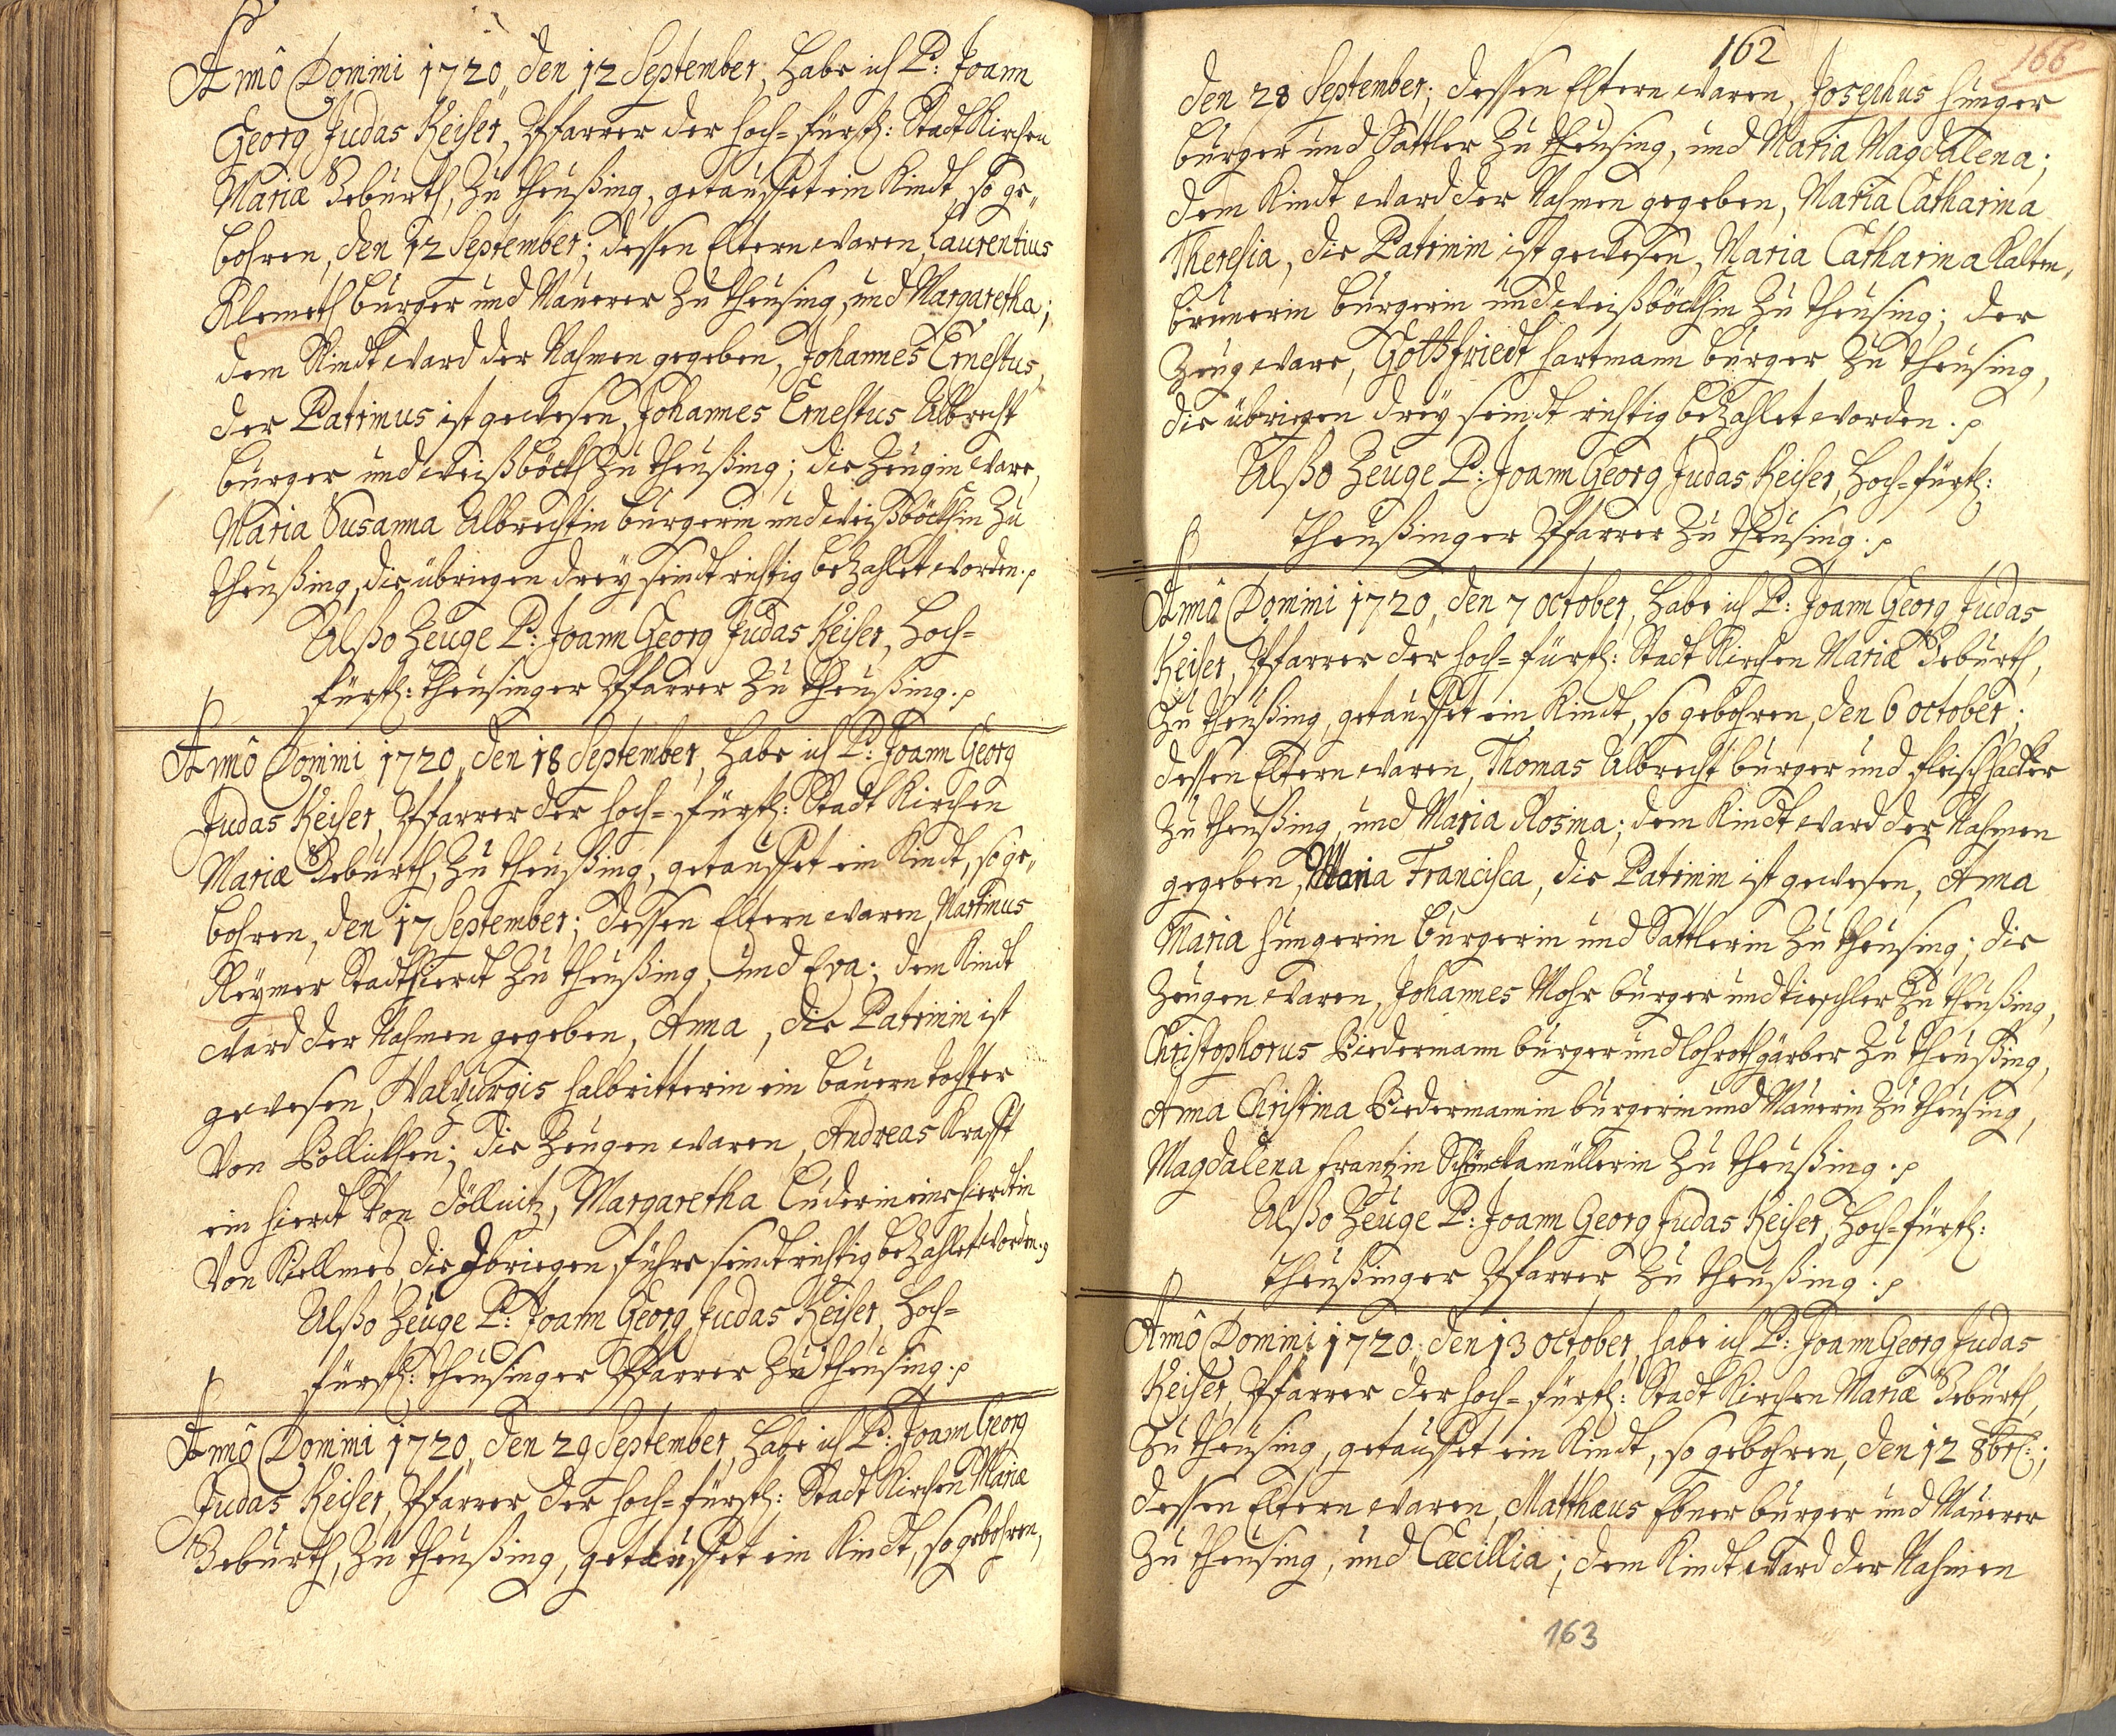 Anno Domini 1720, den 12 September, habe ich P: Joann
Georg Judas Keiser, Pfarrer der hoch=fürstl: Stadt Kirchen
Mariæ Geburth, zu Theußing, getauffet ein Kindt, so ge„
bohren, den 12 September; dessen Eltern waren, Laurentius
Klemeth burger und Maurer zu Theusing, und Margaretha;
dem Kindt ward der Nahmen gegeben, Johannes Ernestus,
der Patrinus ist gewesen, Johannes Ernestus Albrecht
burger und weißböckh zu Theußing; die Zeugin ware,
Maria Susanna Albrechtin burgerin und weißböckhin zu
Theußing, die übriegen drey seindt richtig bezahlet worden.
Alßo Zeuge P: Joann Georg Judas Keiser, Hoch=
fürstl: Theusinger Pfarrer zu Theußing.
Anno Domini 1720, den 18 September, habe ich P: Joann Georg
Judas Keiser, Pfarrer der hoch=fürstl: Stadt Kirchen
Mariæ Geburth, zu Theußing, getauffet ein Kindt, so ge„
bohren, den 17 September; dessen Eltern waren, Martinus
Reymer Stadthierdt zu Theußing, und Eva; dem Kindt
ward der Nahmen gegeben, Anna, die Patrinin ist
gewesen, Walburgis halbritterin ein bauern tochter
von Pollickhen; die Zeugen waren, Andreas Krafft
ein hierdt von Döllnitz, Margaretha Luderin eine hierdtin
von Kiellmes, die übriegen führe seindt richtig bezahlet worden.
Alßo Zeuge P: Joann Georg Judas Keiser, Hoch=
fürstl: Theusinger Pfarrer zu Theusing.
Anno Domini 1720, den 29 September, habe ich P: Joann Georg
Judas Keiser, Pfarrer der hoch=fürstl: Stadt Kirchen Mariæ
Geburth, zu Theußing, getauffet ein Kindt, so gebohren,
162
166
den 28 September; dessen Eltern waren, Josephus Hunger
burger und Sattler zu Theusing, und Maria Magdalena;
dem Kindt ward der Nahmen gegeben, Maria Catharina
Theresia, die Patrinin ist gewesen, Maria Catharina Kalten„
brunerin burgerin und weißböckhin zu Theusing; der
Zeug ware, Gottfriedt Hartmann burger zu Theusing,
die übriegen drey seindt richtig bezahlet worden.
Alßo Zeuge P: Joann Georg Judas Keiser, Hoch=fürstl:
Theußinger Pfarrer zu Theusing.
Anno Domini 1720, den 7 October, habe ich P: Joann Georg Judas
Keiser, Pfarrer der hoch=fürstl: Stadt Kirchen Mariæ Geburth,
zu Theußing, getauffet ein Kindt, so gebohren, den 6 October;
dessen Eltern waren, Thomas Albrecht burger und fleischhacker
zu Theußing, und Maria Rosina; dem Kindt ward der Nahmen
gegeben, Maria Francisca, die Patrinin ist gewesen, Anna
Maria Hungerin burgerin und Sattlerin zu Theusing; die
Zeugen waren, Johannes Mohr burger und tieschler zu Theußing,
Christophorus Biedermann burger und lohrothgärber zu Theußing,
Anna Christina Biedermannin burgerin und Maurerin zu Theusing,
Magdalena Frantzin zu Theußing.
Alßo Zeuge P: Joann Georg Judas Keiser, Hoch=fürstl:
Theußinger Pfarrer zu Theußing.
Anno Domini 1720, den 13 October, habe ich P: Joann Georg Judas
Keiser, Pfarrer der hoch=fürstl: Stadt Kirchen Mariæ Geburth,
zu Theusing, getauffet ein Kindt, so gebohren, den 12 8br:;
dessen Eltern waren, Matthæus Ebner burger und Maurer
zu Theusing, und Cæcillia; dem Kindt ward der Nahmen
163